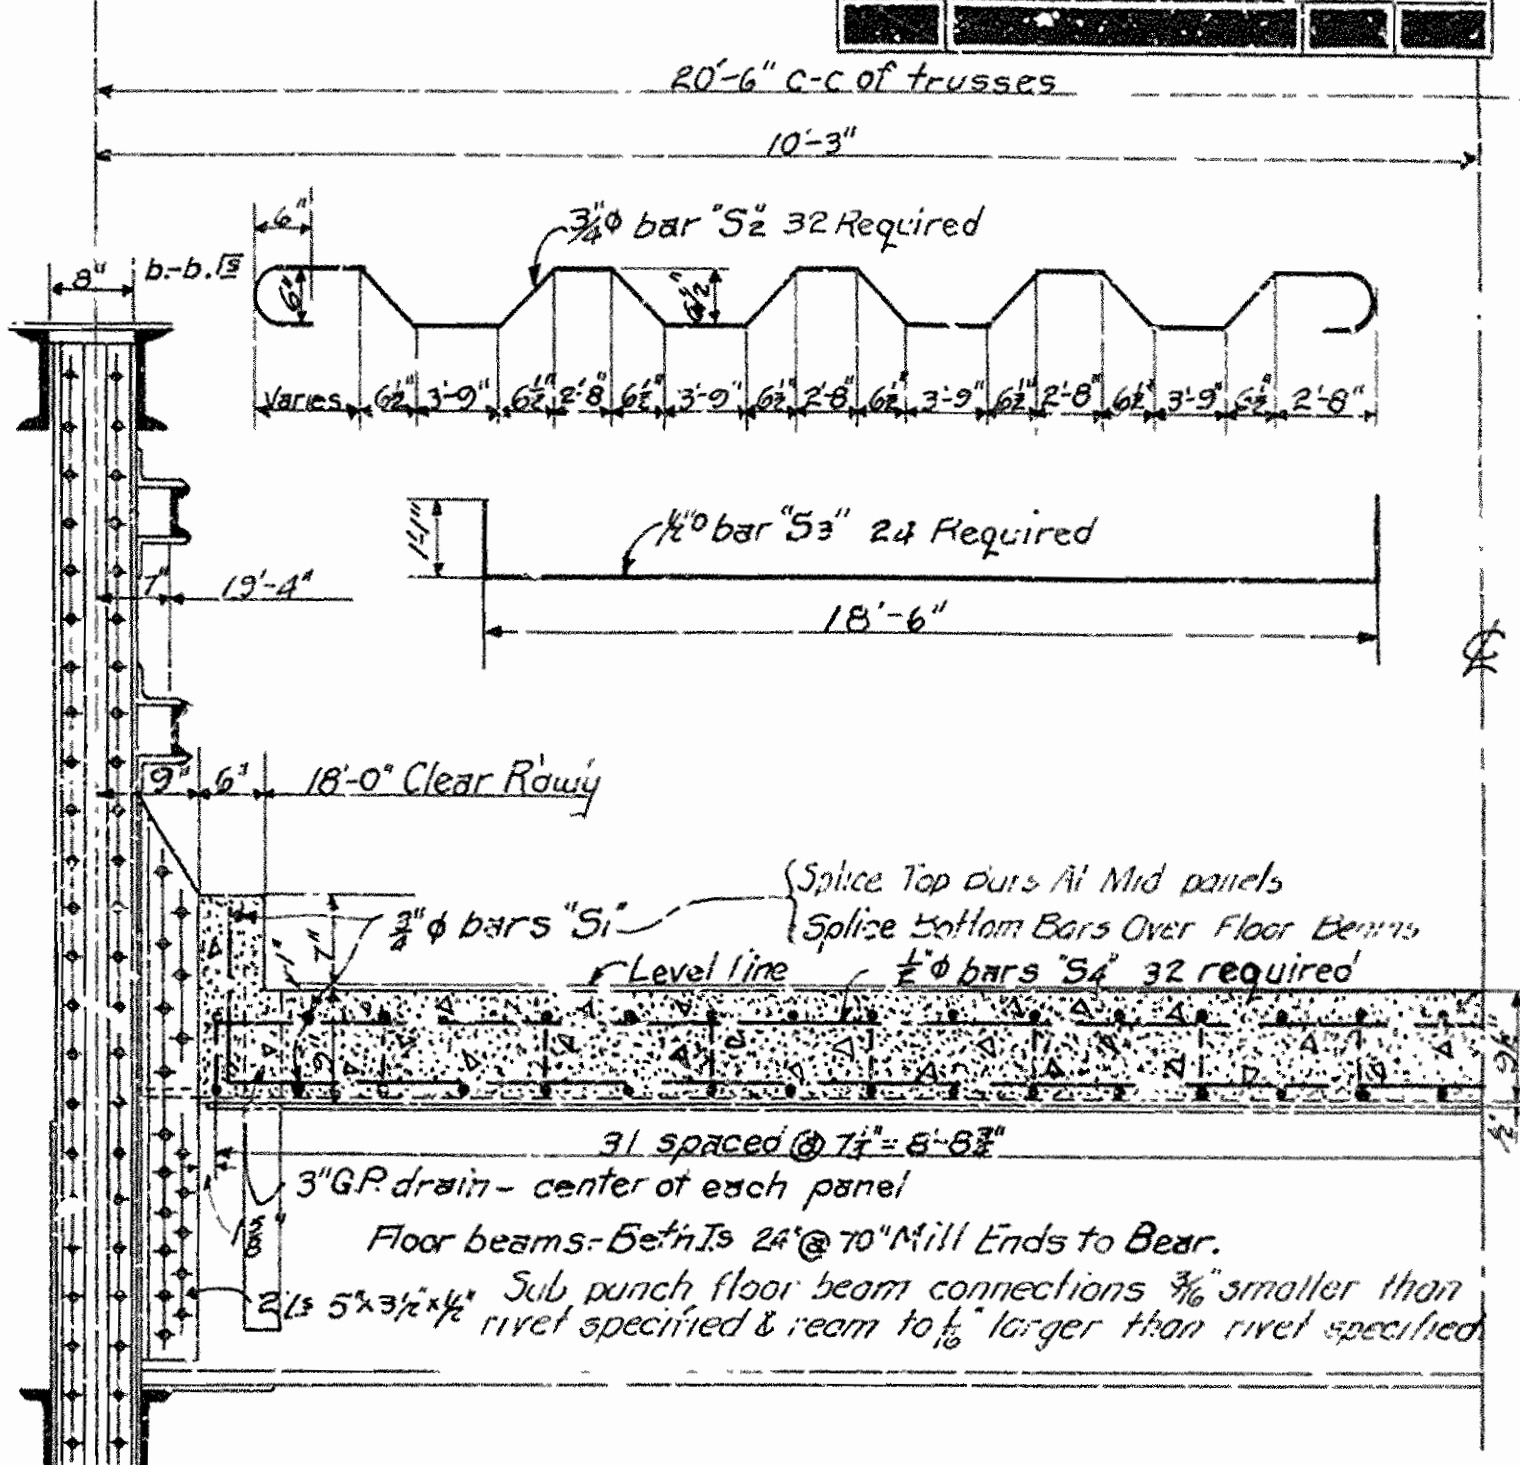 20'-6" c-c of trusses
10'-3"
6"
¾"ϕ bar "S2" 32 Required
8" b.-b.
6" 6½"
Varies 6½" 3'-9" 6½" 2'-8" 6½" 3'-9" 6½" 2'-8" 6½" 3'-9" 6½" 2'-8" 6½" 3'-9" 6½" 2'-8"
1'-1"
bar "S3" 24 Required
7" 19'-4"
18'-6"
℄
9" 6" 18'-0" Clear R'dw'y
Splice Top Bars At Mid panels
¾"ϕ bars "S1"
Splice Bottom Bars Over Floor Beams
1" 7"
Level line
½"ϕ bars "S4" 32 required
9" 9½"
½"
31 spaced @ = 8'-8¾"
3" G.P. drain - center of each panel
1⅝"
Floor beams:- Beth Is 24" @ 70" Mill Ends to Bear.
2 Ls 5"x3½"x½"
Sub punch floor beam connections 3/16" smaller than
rivet specified & ream to 1/16" larger than rivet specified